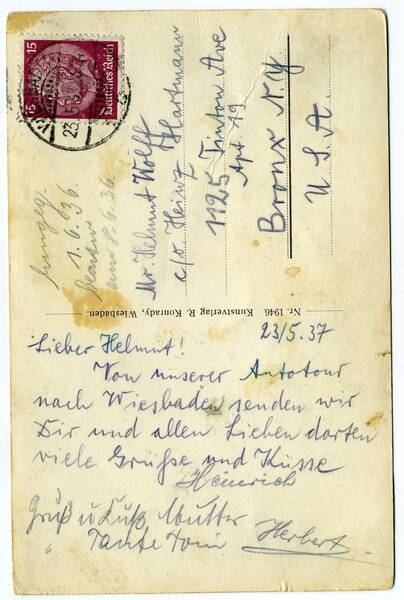 15 Deutsches Reich 15
23.
Mr. Helmut Wolff
c/o. Heinz Hartmann
1125 Tinton Ave
Apt 19
Bronx N.Y.
U.S.A.
1. 6. 36.
am 8. 6. 36.
Nr. 1946. Kunstverlag R. Konrady, Wiesbaden.
23/5.37
Lieber Helmut!
Von unserer Autotour
nach Wiesbaden senden wir
Dir und allen Lieben dorten
viele Grüße und Küsse
Heinrich
Gruß u Kuß Mutter
" Tante Toni Herbert.